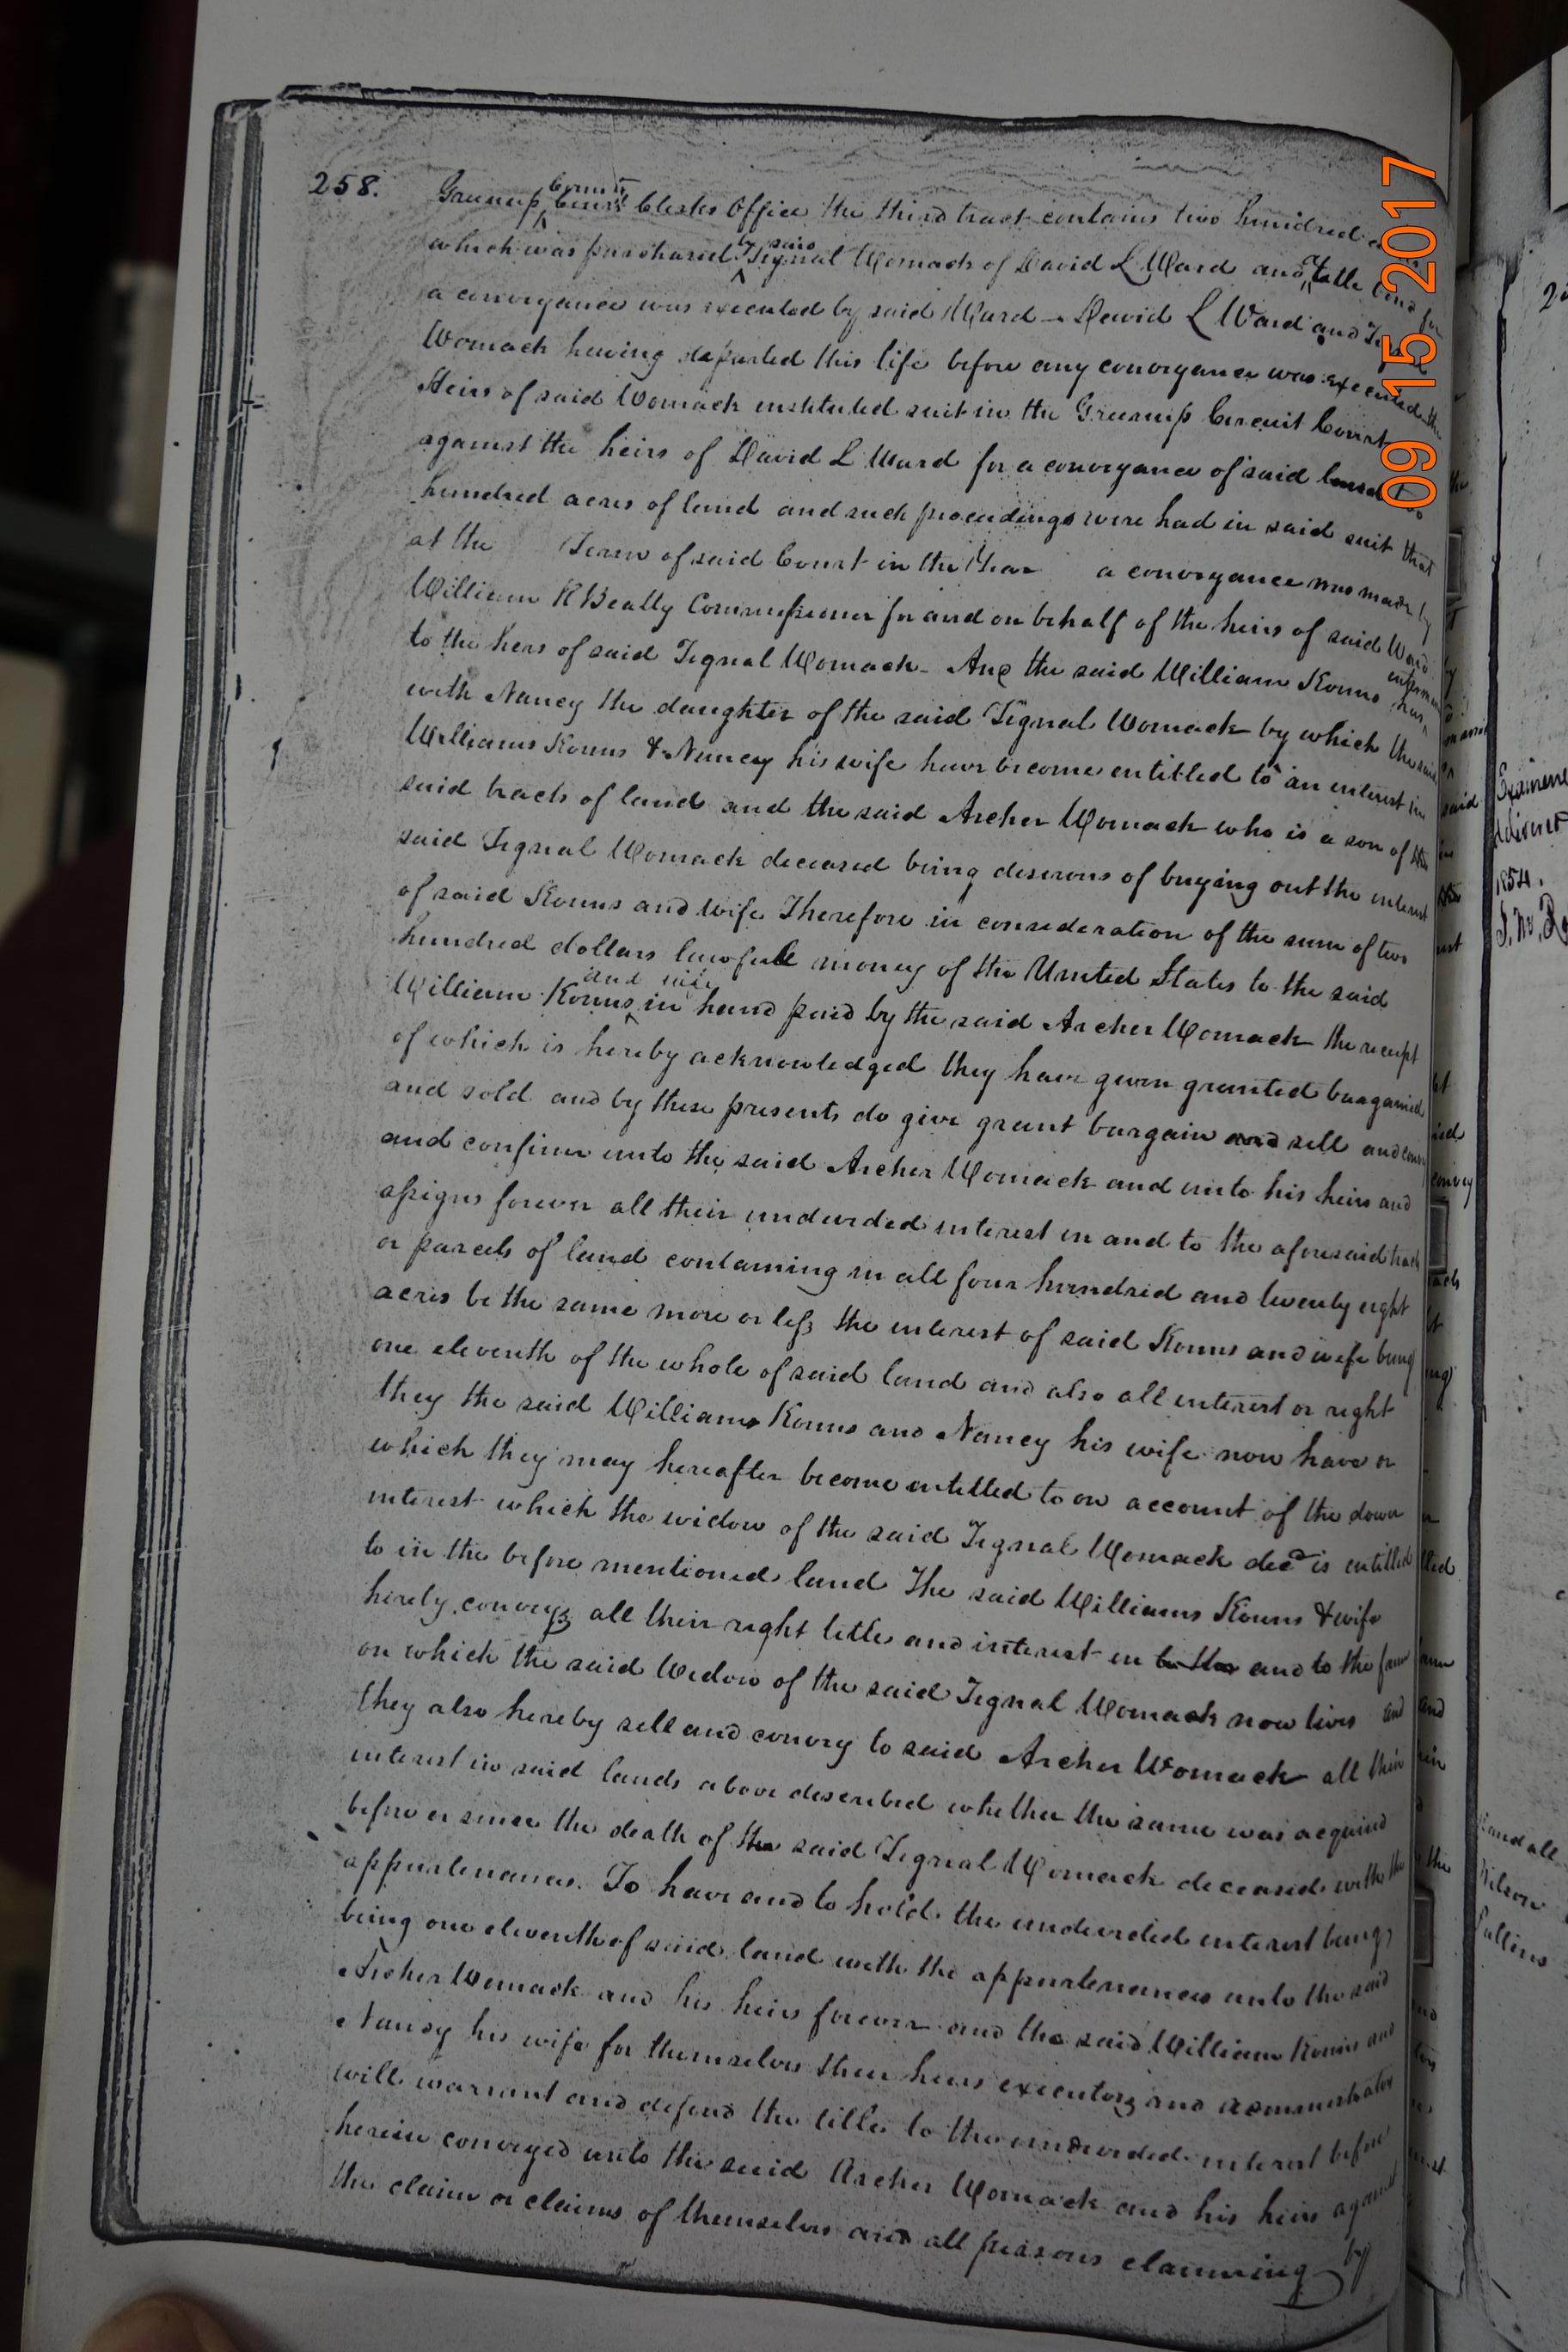 258.
Greenup County Court Clerks Office the third tract contains two hundred
which was purchased by said Tignal Womack of David L Ward and a title bond for
a conveyance was executed by said Ward - David L Ward and
Womack having departed this life before any conveyance was executed the
Heirs of said Womack instituted suit in the Greenup Circuit Court
against the heirs of David L Ward for a conveyance of said
hundred acres of land and such proceedings were had in said suit that
at the Term of said Court in the Year a conveyance was made by
William R Beatty Commissioner for and on behalf of the heirs of said Ward
to the heirs of said Tignal Womack - And the said William Kouns has
with Nancy the daughter of the said Tignal Womack by which the said
Williams Kouns & Nancy his wife have become entitled to an interest in
said tracts of land and the said Archer Womack who is a son of the
said Tignal Womack deceased being desirous of buying out the interest
of said Kouns and wife Therefore in consideration of the sum of two
hundred dollars lawfull money of the United States to the said
William Kouns and wife in hand paid by the said Archer Womack the receipt
of which is hereby acknowledged they have given granted bargained
and sold and by these presents do give grant bargain and sell and convey
and confirm unto the said Archer Womack and unto his heirs and
assigns forever all their undivided interest in and to the aforesaid tracts
or parcels of land containing in all four hundred and twenty eight
acres be the same more or less the interest of said Kouns and wife being
one eleventh of the whole of said land and also all interest or right
they the said Williams Kouns and Nancy his wife now have or
which they may hereafter become entitled to on account of the dower
interest which the widow of the said Tignal Womack decd is entitled
to in the before mentioned land The said Williams Kouns & wife
hereby conveys all their right title and interest in to the and to the farm
on which the said Widow of the said Tignal Womack now lives and
they also hereby sell and convey to said Archer Womack all their
interest in said lands above described whether the same was acquired
before or since the death of the said Tignal Womack deceased with the
appurtenances. To have and to hold the undivided interest being
being one eleventh of said land with the appurtenances unto the said
Archer Womack and his heirs forever and the said William Kouns and
Nancy his wife for themselves their heirs executors and administrators
will warrant and defend the title to the undivided interest before
herein conveyed unto the said Archer Womack and his heirs against
the claim or claims of themselves and all persons claiming by
09 15 2017
1854.